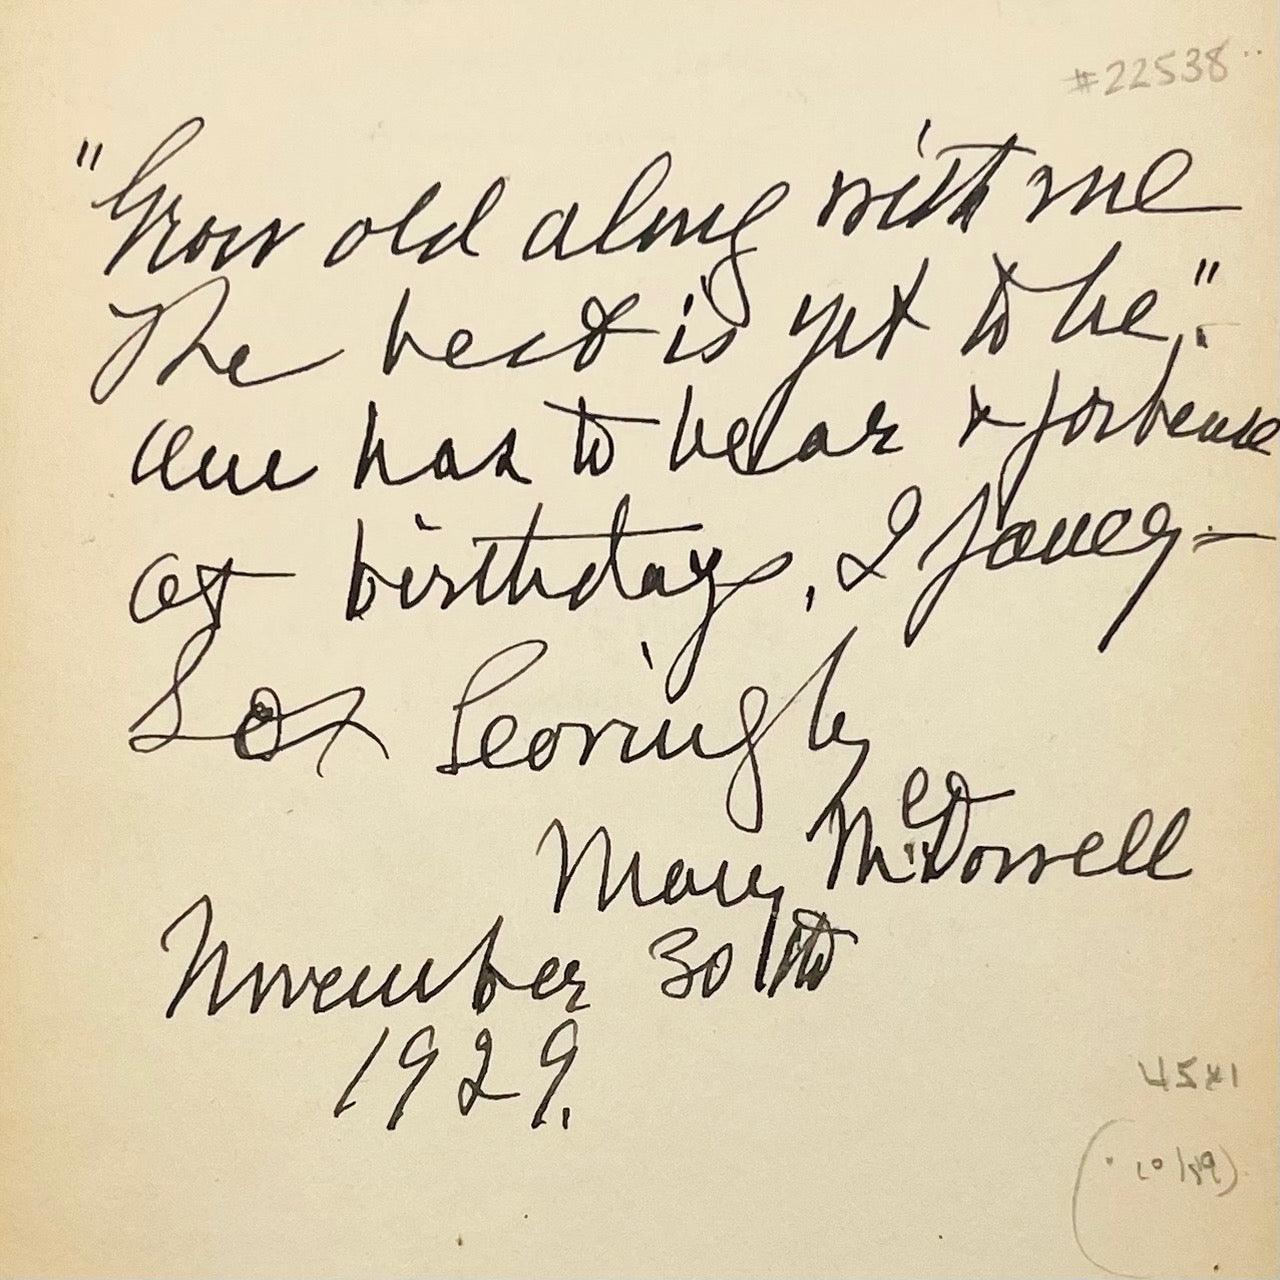 #22538
"Grow old along with me
The best is yet to be".
One has to bear & forbear
at birthdays, I fancy –
So lovingly
Mary McDowell
November 30th
1929.
45x1
(10/89)